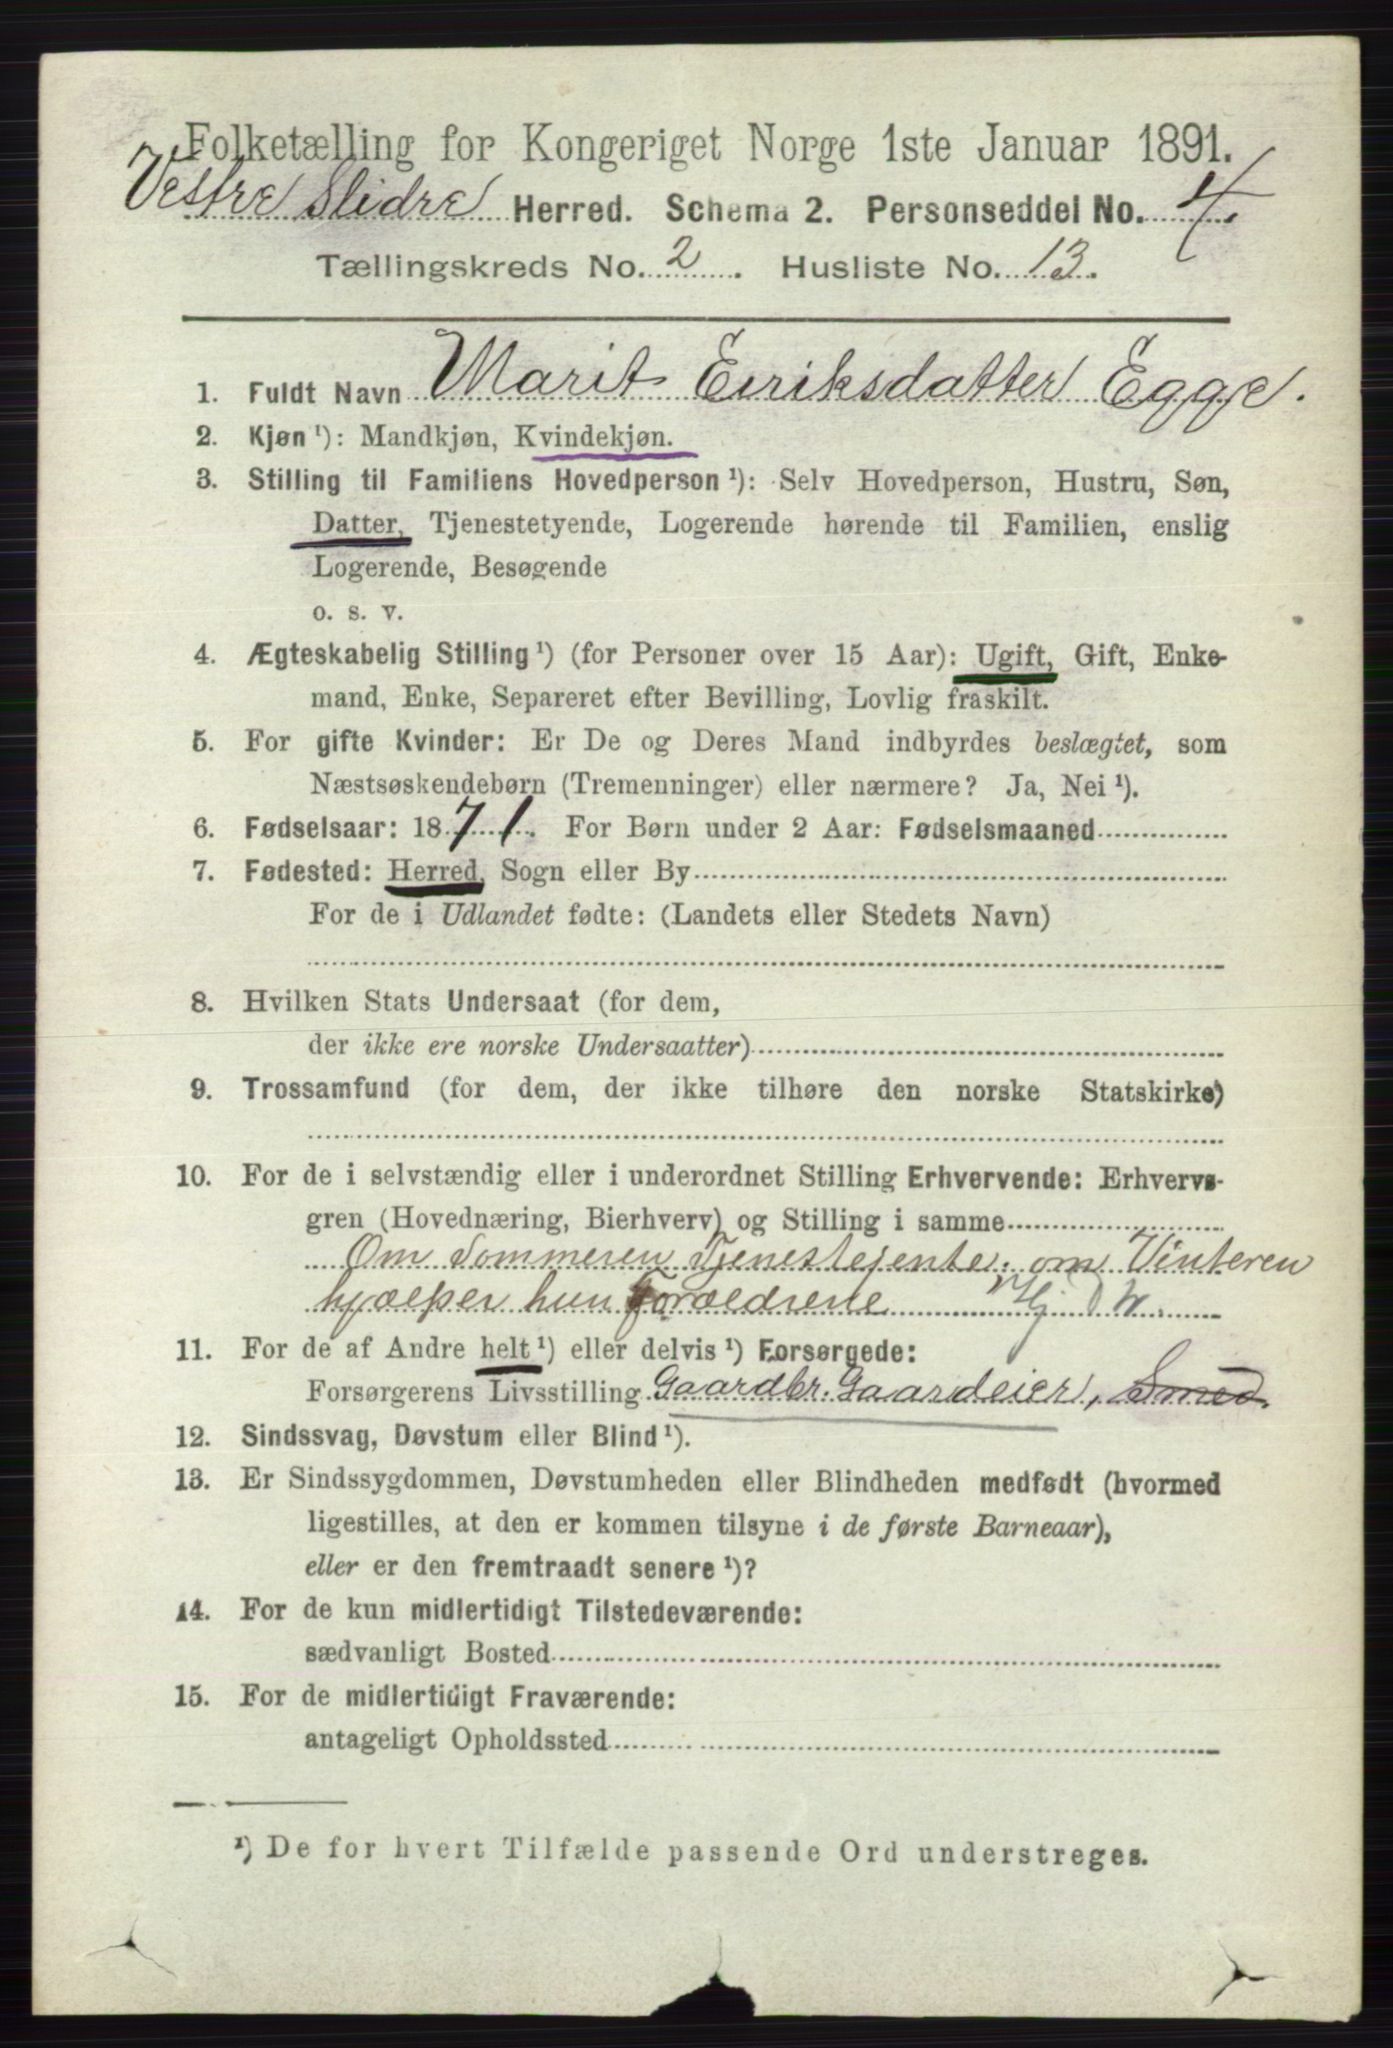 Folketælling for Kongeriget Norge 1ste Januar 1891.
Vestre Slidre Herred. Schema 2. Personseddel No. 4.
Tællingskreds No. 2. Husliste No. 13.
1. Fuldt Navn Marit Eiriksdatter Egge.
2. Kjøn ¹): Mandkjøn, Kvindekjøn.
3. Stilling til Familiens Hovedperson ¹): Selv Hovedperson, Hustru, Søn,
Datter, Tjenestetyende, Logerende hørende til Familien, enslig
Logerende, Besøgende
o. s. v.
4. Ægteskabelig Stilling ¹) (for Personer over 15 Aar): Ugift, Gift, Enke-
mand, Enke, Separeret efter Bevilling, Lovlig fraskilt.
5. For gifte Kvinder: Er De og Deres Mand indbyrdes beslægtet, som
Næstsøskendebørn (Tremenninger) eller nærmere? Ja, Nei ¹).
6. Fødselsaar: 1871. For Børn under 2 Aar: Fødselsmaaned
7. Fødested: Herred, Sogn eller By
For de i Udlandet fødte: (Landets eller Stedets Navn)
8. Hvilken Stats Undersaat (for dem,
der ikke ere norske Undersaatter)
9. Trossamfund (for dem, der ikke tilhøre den norske Statskirke)
10. For de i selvstændig eller i underordnet Stilling Erhvervende: Erhvervs-
gren (Hovednæring, Bierhverv) og Stilling i samme
Om Sommeren Tjenestejente, om Vinteren
hjælper hun Forældrene
11. For de af Andre helt ¹) eller delvis ¹) Forsørgede:
Forsørgerens Livsstilling Gaardbr. Gaardeier, Smed.
12. Sindssvag, Døvstum eller Blind ¹).
13. Er Sindssygdommen, Døvstumheden eller Blindheden medfødt (hvormed
ligestilles, at den er kommen tilsyne i de første Barneaar),
eller er den fremtraadt senere ¹)?
14. For de kun midlertidigt Tilstedeværende:
sædvanligt Bosted
15. For de midlertidigt Fraværende:
antageligt Opholdssted
¹) De for hvert Tilfælde passende Ord understreges.